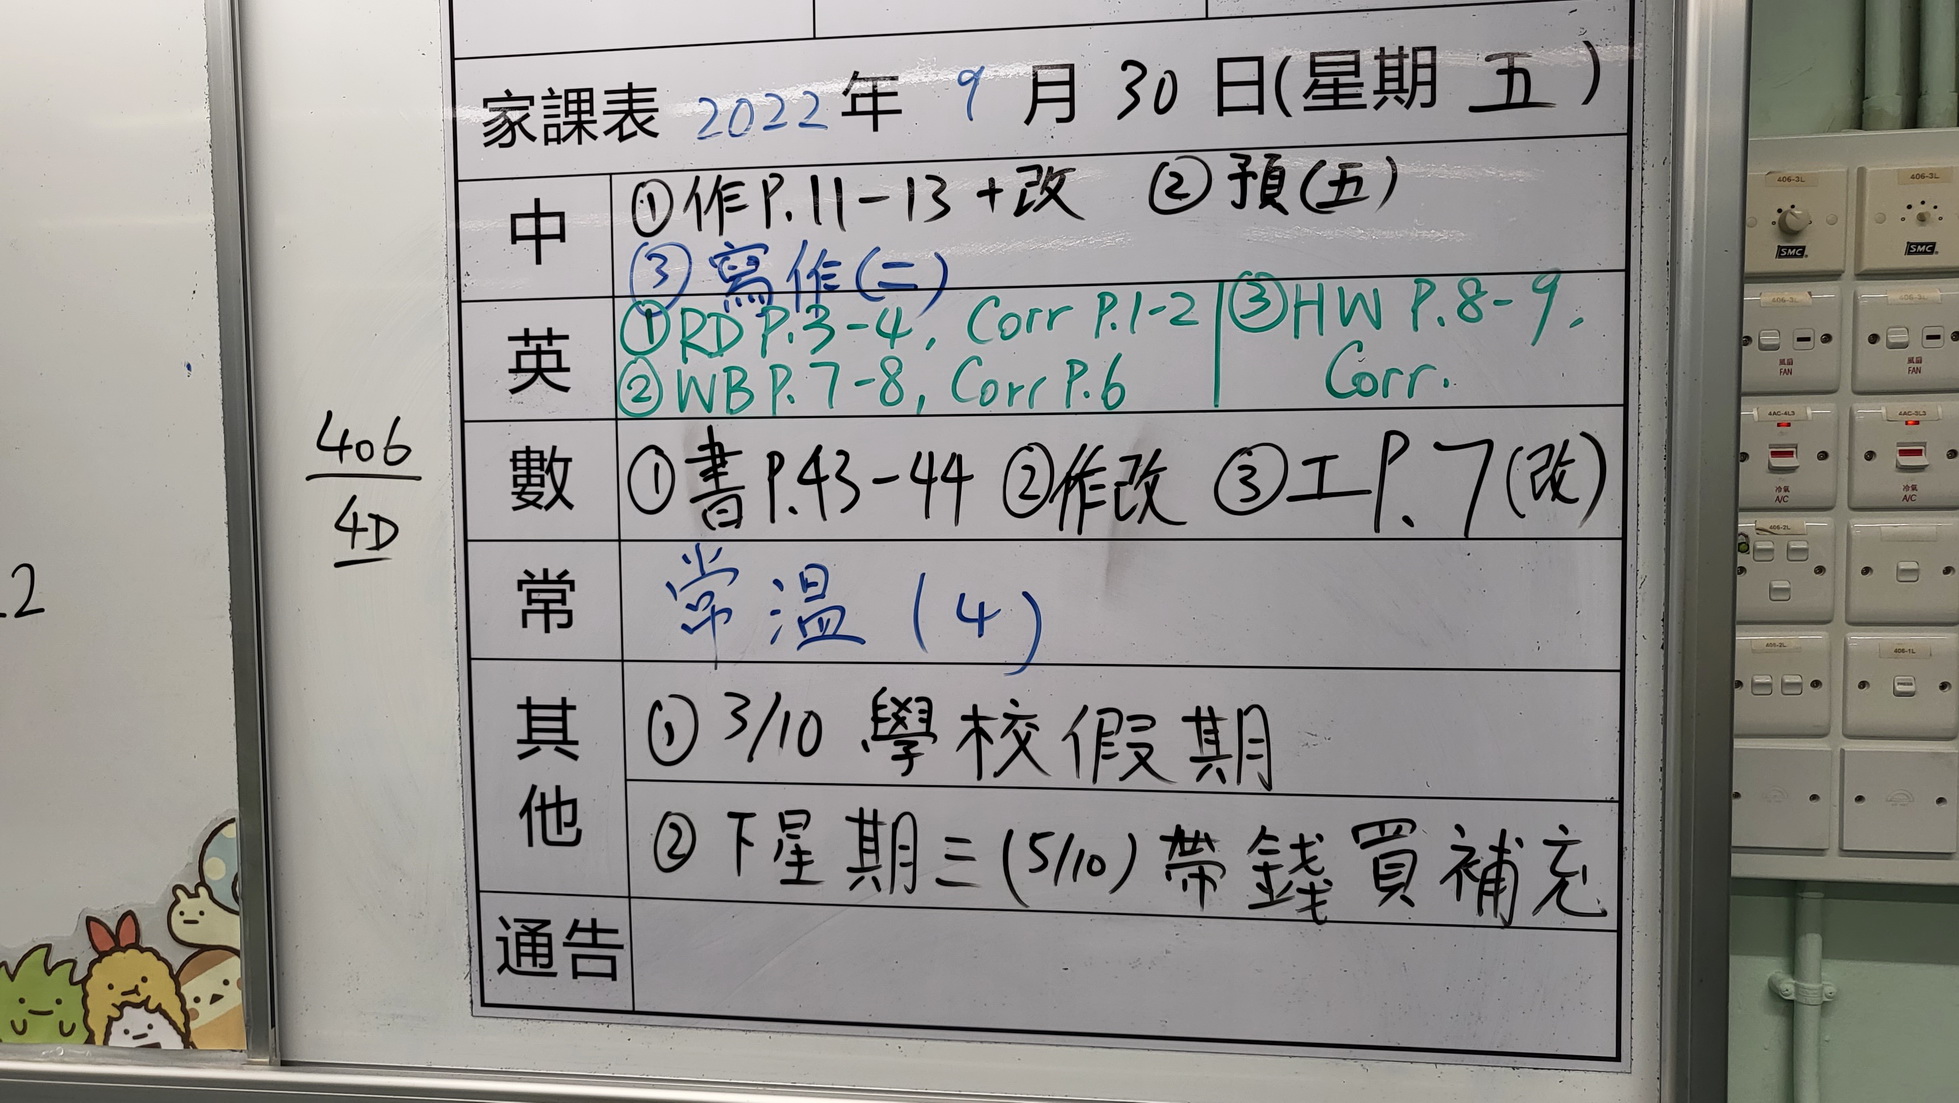 家課表 2022年 9月 30日(星期 五)
中
①作P.11-13+改 ②預(五)
③寫作(二)
英
①RD P.3-4, Corr P.1-2
②WB P.7-8, Corr P.6
③HW P.8-9,
Corr.
數
①書P.43-44 ②作改 ③工P.7(改)
常
常溫(4)
其他
①3/10 學校假期
②下星期三(5/10)帶錢買補充
通告
406
4D
.2
406-3L
406-3L
SMC
SMC
風扇
FAN
風扇
FAN
4AC-4L3
4AC-3L3
冷氣
A/C
冷氣
A/C
406-2L
406-2L
406-1L